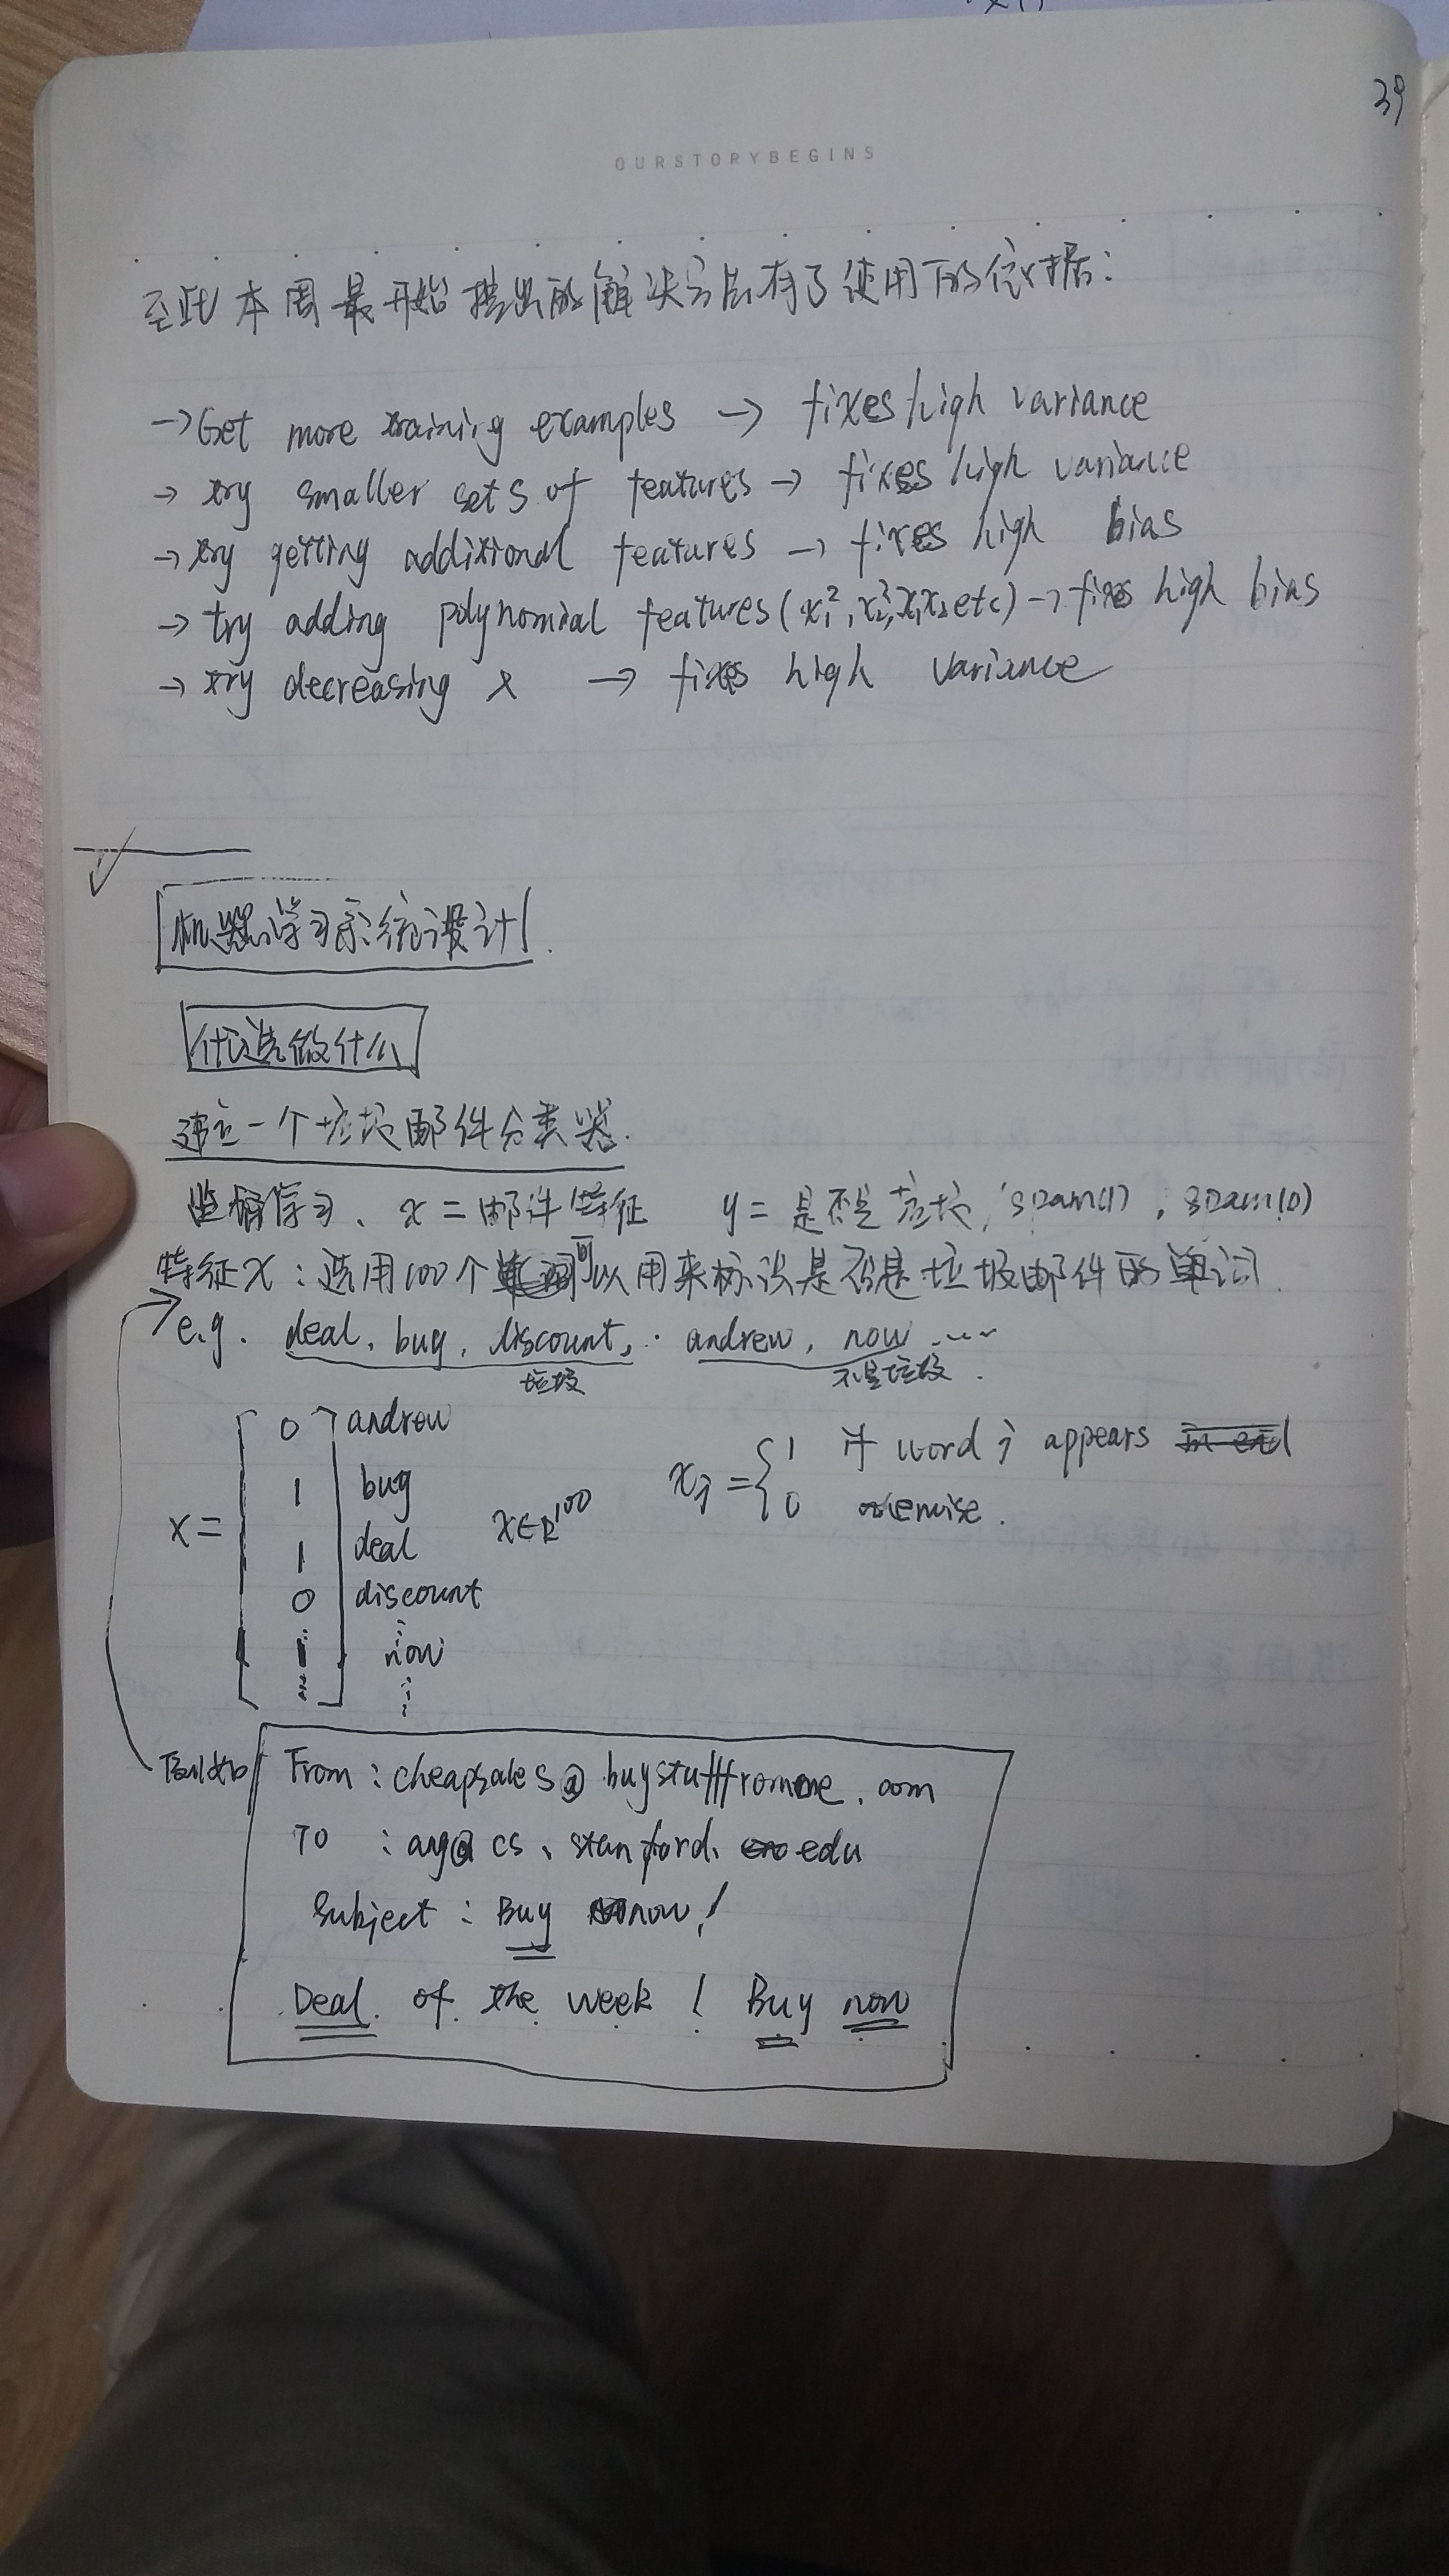 39
OURSTORYBEGINS
至此本周最开始提出的解决方法有了使用的依据:
→Get more training examples → fixes high variance
→ try smaller sets of features → fixes high variance
→ try getting additional features → fixes high bias
→ try adding polynomial features(x₁², x₂², x₁x₂ etc) → fixes high bias
→ try decreasing λ → fixes high variance
机器学习系统设计.
优先做什么
建立一个垃圾邮件分类器.
监督学习、x = 邮件特征 y = 是否是垃圾, spam(1), spam(0)
特征x:选用100个可以用来标识是否是垃圾邮件的单词.
e.g. deal, buy, discount, . andrew, now ....
垃圾 不是垃圾.
x = [0 andrew
1 buy
1 deal
0 discount
⋮
1 now
⋮]
x∈R¹⁰⁰
xⱼ = {1 if word j appears
0 otherwise.
From : cheapsales@buystufffromme.com
To : ang@cs.stanford.edu
Subject : Buy now!
Deal of the week! Buy now